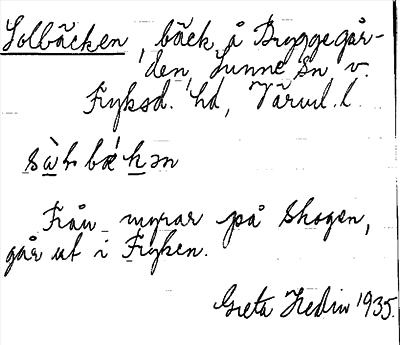 Solbäcken, bäck å Bryggegår-
den, Sunne sn, v.
Fryksd. hd, Värml. l.
Från myrar på skogen,
går ut i Fryken.
Greta Hedin 1935.